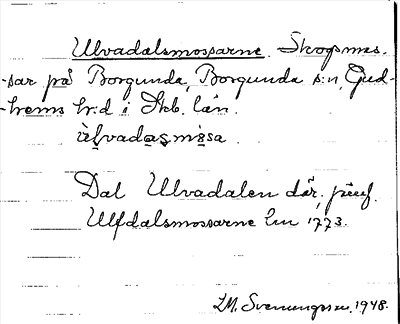 Ulvadalsmossarne. Skogsmos-
sar på Borgunda, Borgunda s:n, Gud-
hems hrd i Skb. län.
ùlvadasmåsa
Dal Ulvadalen där, jämf.
Ulfdalsmossarne Lm 1773.
1948.